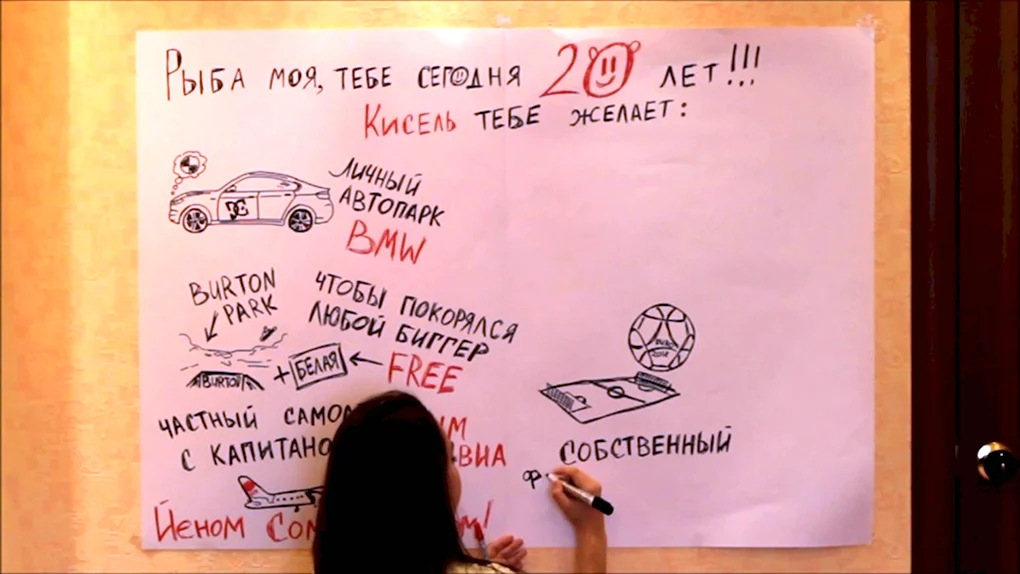 РЫБА МОЯ, ТЕБЕ СЕГОДНЯ 20 ЛЕТ!!!
КИСЕЛЬ ТЕБЕ ЖЕЛАЕТ:
ЛИЧНЫЙ
АВТОПАРК
BMW
BURTON
PARK
ЧТОБЫ ПОКОРЯЛСЯ
ЛЮБОЙ БИГГЕР
BURTON + БЕЛАЯ FREE
ЧАСТНЫЙ
С
СОБСТВЕННЫЙ
Ф